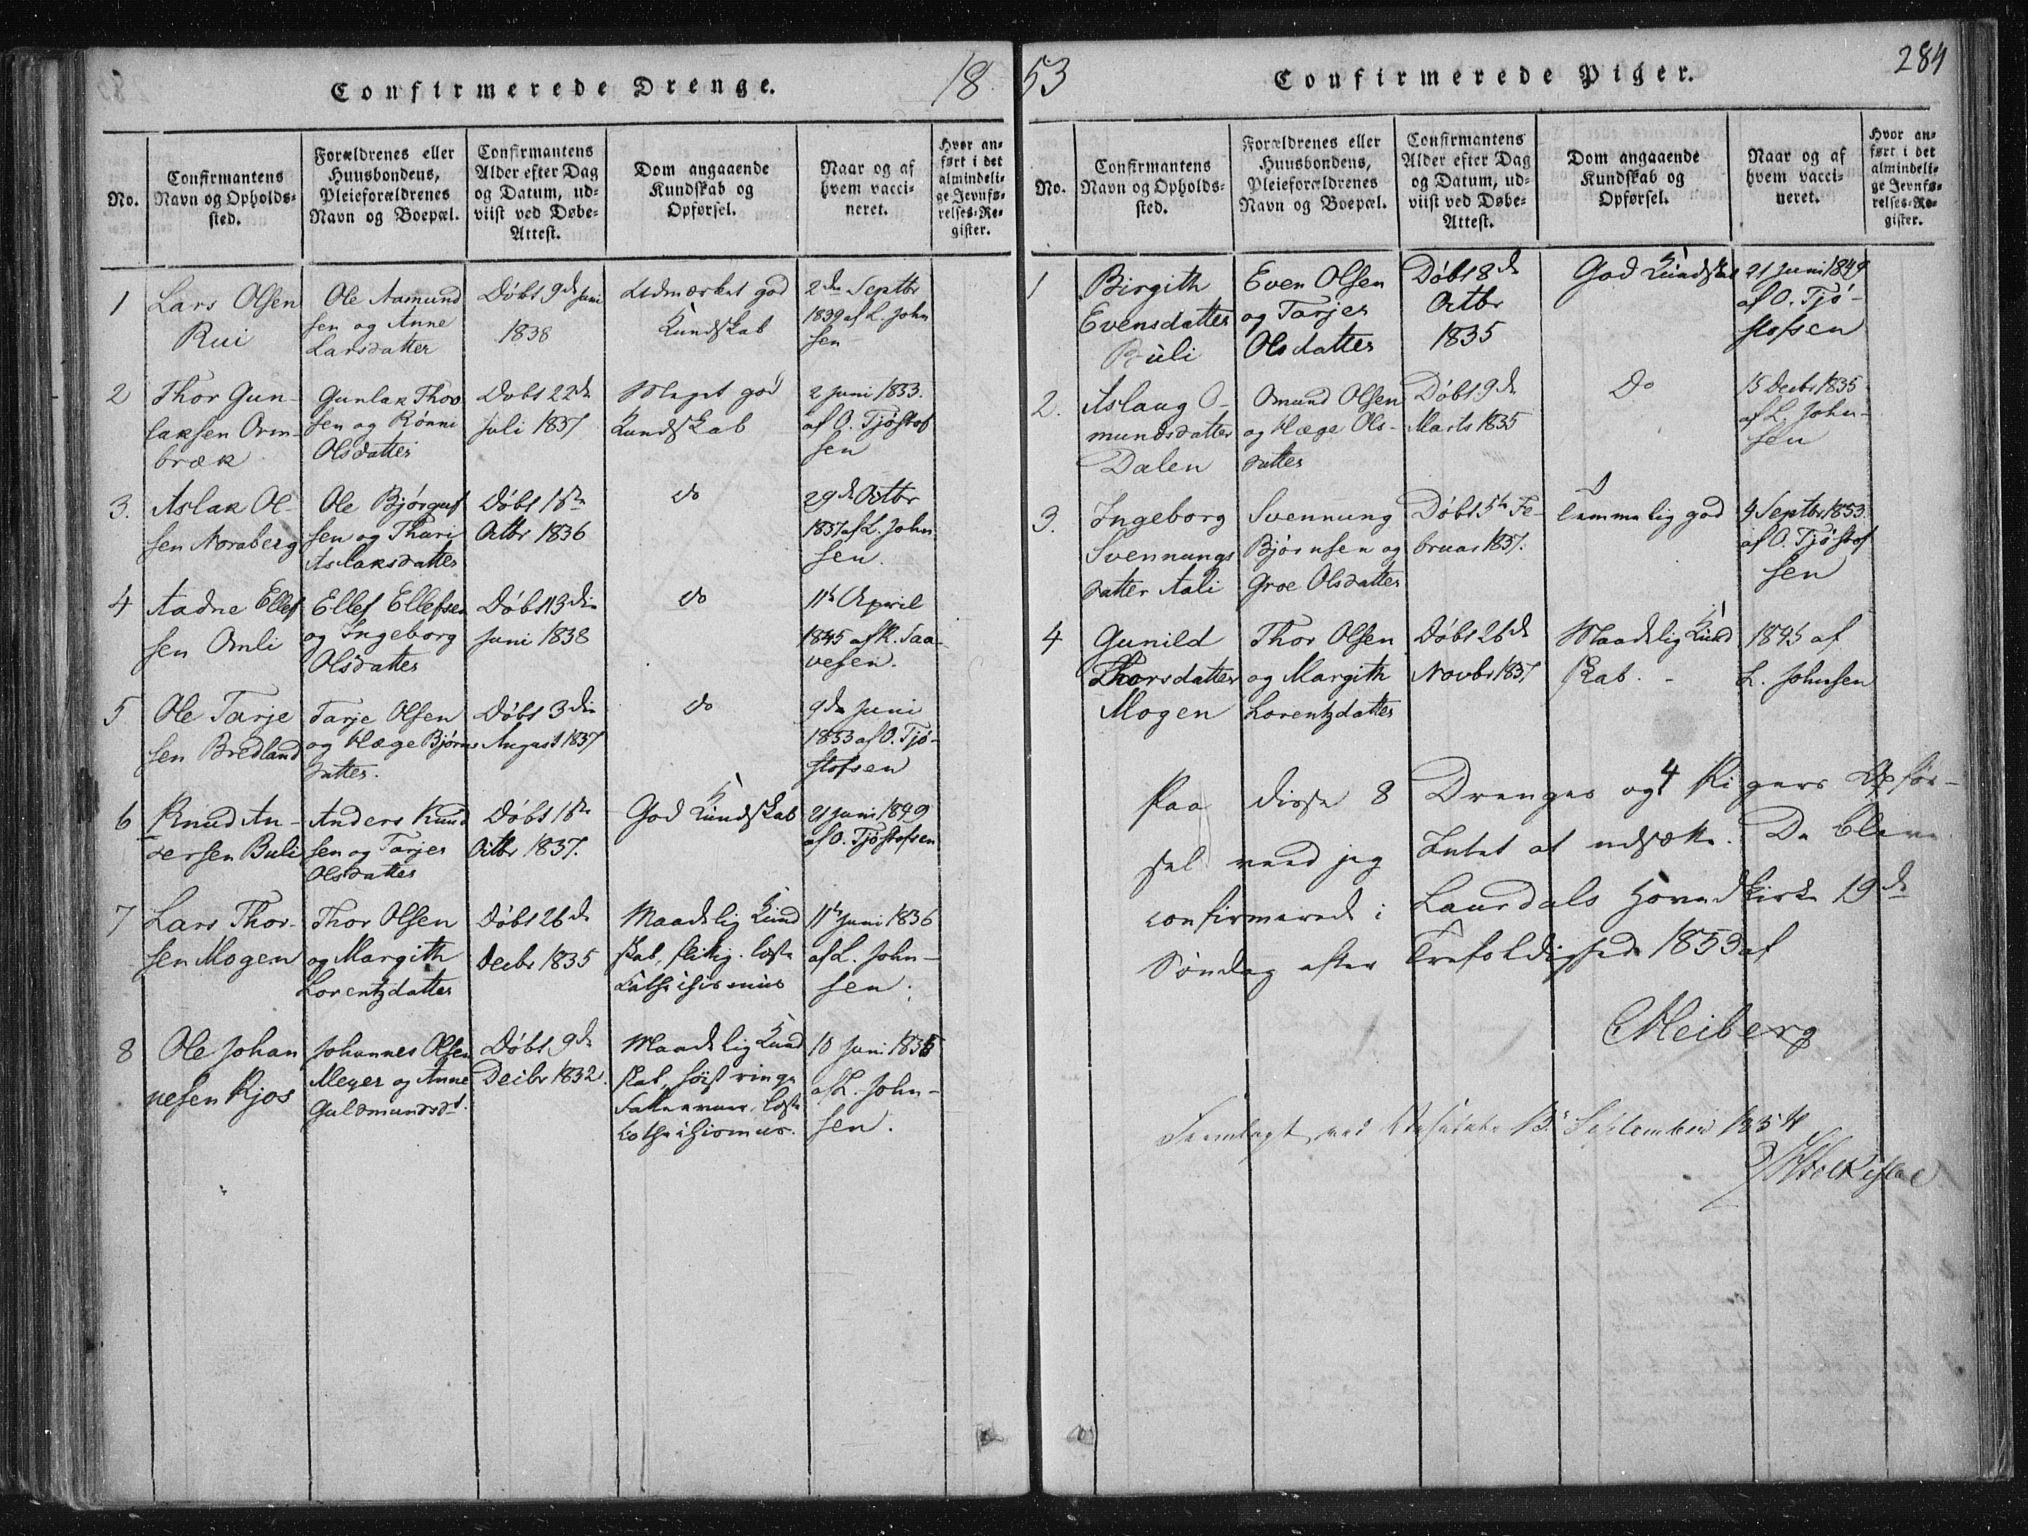 Confirmerede Drenge.
18
No.
Confirmantens
Navn og Opholds-
sted.
Forældrenes eller
Huusbondens,
Pleieforældrenes
Navn og Boepæl.
Confirmantens
Alder efter Dag
og Datum, ud-
viist ved Døbe-
Attest.
Dom angaaende
Kundskab og
Opførsel.
Naar og af
hvem vacci-
neret.
Hvor an-
ført i det
almindeli-
ge Jevnfø-
relses-Re-
gister.
1
Lars Olsen
Rui
Ole Aamund
sen og Anne
Larsdatter
Døbt 9de Juni
1838
Udmærket god
Kundskab
2den Septbr
1839 af L. John
sen
2
Thor Gun-
laksen Orm-
bræk
Gunlak Thor
sen og Rønni
Olsdatter
Døbt 22de
Juli 1837
Meget god
Kundskab
2 Juni 1833.
af O. Tjøstof
sen
3.
Aslak Ol-
sen Noraberg
Ole Bjørguf
sen og Thuri
Aslaksdatter
Døbt 16de
Octbr 1836
do
29de Octbr
1837 af L. John
sen.
4
Aadne Ellef
sen Omli
Ellef Ellefsen
og Ingeborg
Olsdatter
Døbt 13die
Juni 1838
do
11te April
1845 af K. Saa-
vesen.
5
Ole Tarje
sen Bredland
Tarje Olsen
og Hæge Bjørns
datter.
Døbt 3die
August 1837
do
9de Juni
1853 af O. Tjø-
stofsen
6
Knud An-
dersen Buli
Anders Knud
sen og Tarjer
Olsdatter
Døbt 16de
Octbr 1837.
God Kundskab
21 Juni 1849
af O. Tjøstofsen
7
Lars Thor-
sen Mogen
Thor Olsen
og Margith
Lorentzdatter
Døbt 26de
Decbr 1835
Maadelig Kund
skab, flittig. læste
Cathechismus
11te Juni 1836
af L. John-
sen.
8
Ole Johan
nesen Kjos
Johannes Olsen
Meyer og Anne
Guldmundsdt.
Døbt 9de
Decbr 1832.
Maadelig Kund
skab, høist ringe
Fatteevne, læste
Cathechismus.
10 Juni 1835
af L. John-
sen.
53
Confirmerede Piger.
284
No.
Confirmantens
Navn og Opholds-
sted.
Forældrenes eller
Huusbondens,
Pleieforældrenes
Navn og Boepæl.
Confirmantens
Alder efter Dag
og Datum, ud-
viist ved Døbe-
Attest.
Dom angaaende
Kundskab og
Opførsel.
Naar og af
hvem vacci-
neret.
Hvor an-
ført i det
almindeli-
ge Jevnfø-
relses-Re-
gister.
1
Birgith
Evensdatter
Buli
Even Olsen
og Tarjer
Olsdatter
Døbt 8de
Octbr
1835
God Kundskab
21 Juni 1849
af O. Tjø-
stofsen
2.
Aslaug O-
mundsdatter
Dalen
Omund Olsen
og Hæge Ols-
datter
Døbt 9de
Marts 1835
Do
15 Decbr 1835
af L. John-
sen
3.
Ingeborg
Svennungs
datter Aali
Svennung
Bjørnsen og
Groe Olsdatter
Døbt 5te Fe-
bruar 1837.
Temmelig god
4 Septbr 1853
af O. Tjøstof
sen
4
Gunild
Thorsdatter
Mogen
Thor Olsen
og Margith
Lorentzdatter
Døbt 26de
Novbr 1837
Maadelig Kund
skab. -
1845 af
L. Johnsen
Paa disse 8 Drenges og 4 Pigers Opfør-
sel veed jeg Intet at udsætte. De bleve
confirmerede i Laurdals Hovedkirke 19de
Søndag efter Trefoldighed 1853 af
Meiberg
Fremlagt ved Visitats 13. September 1854